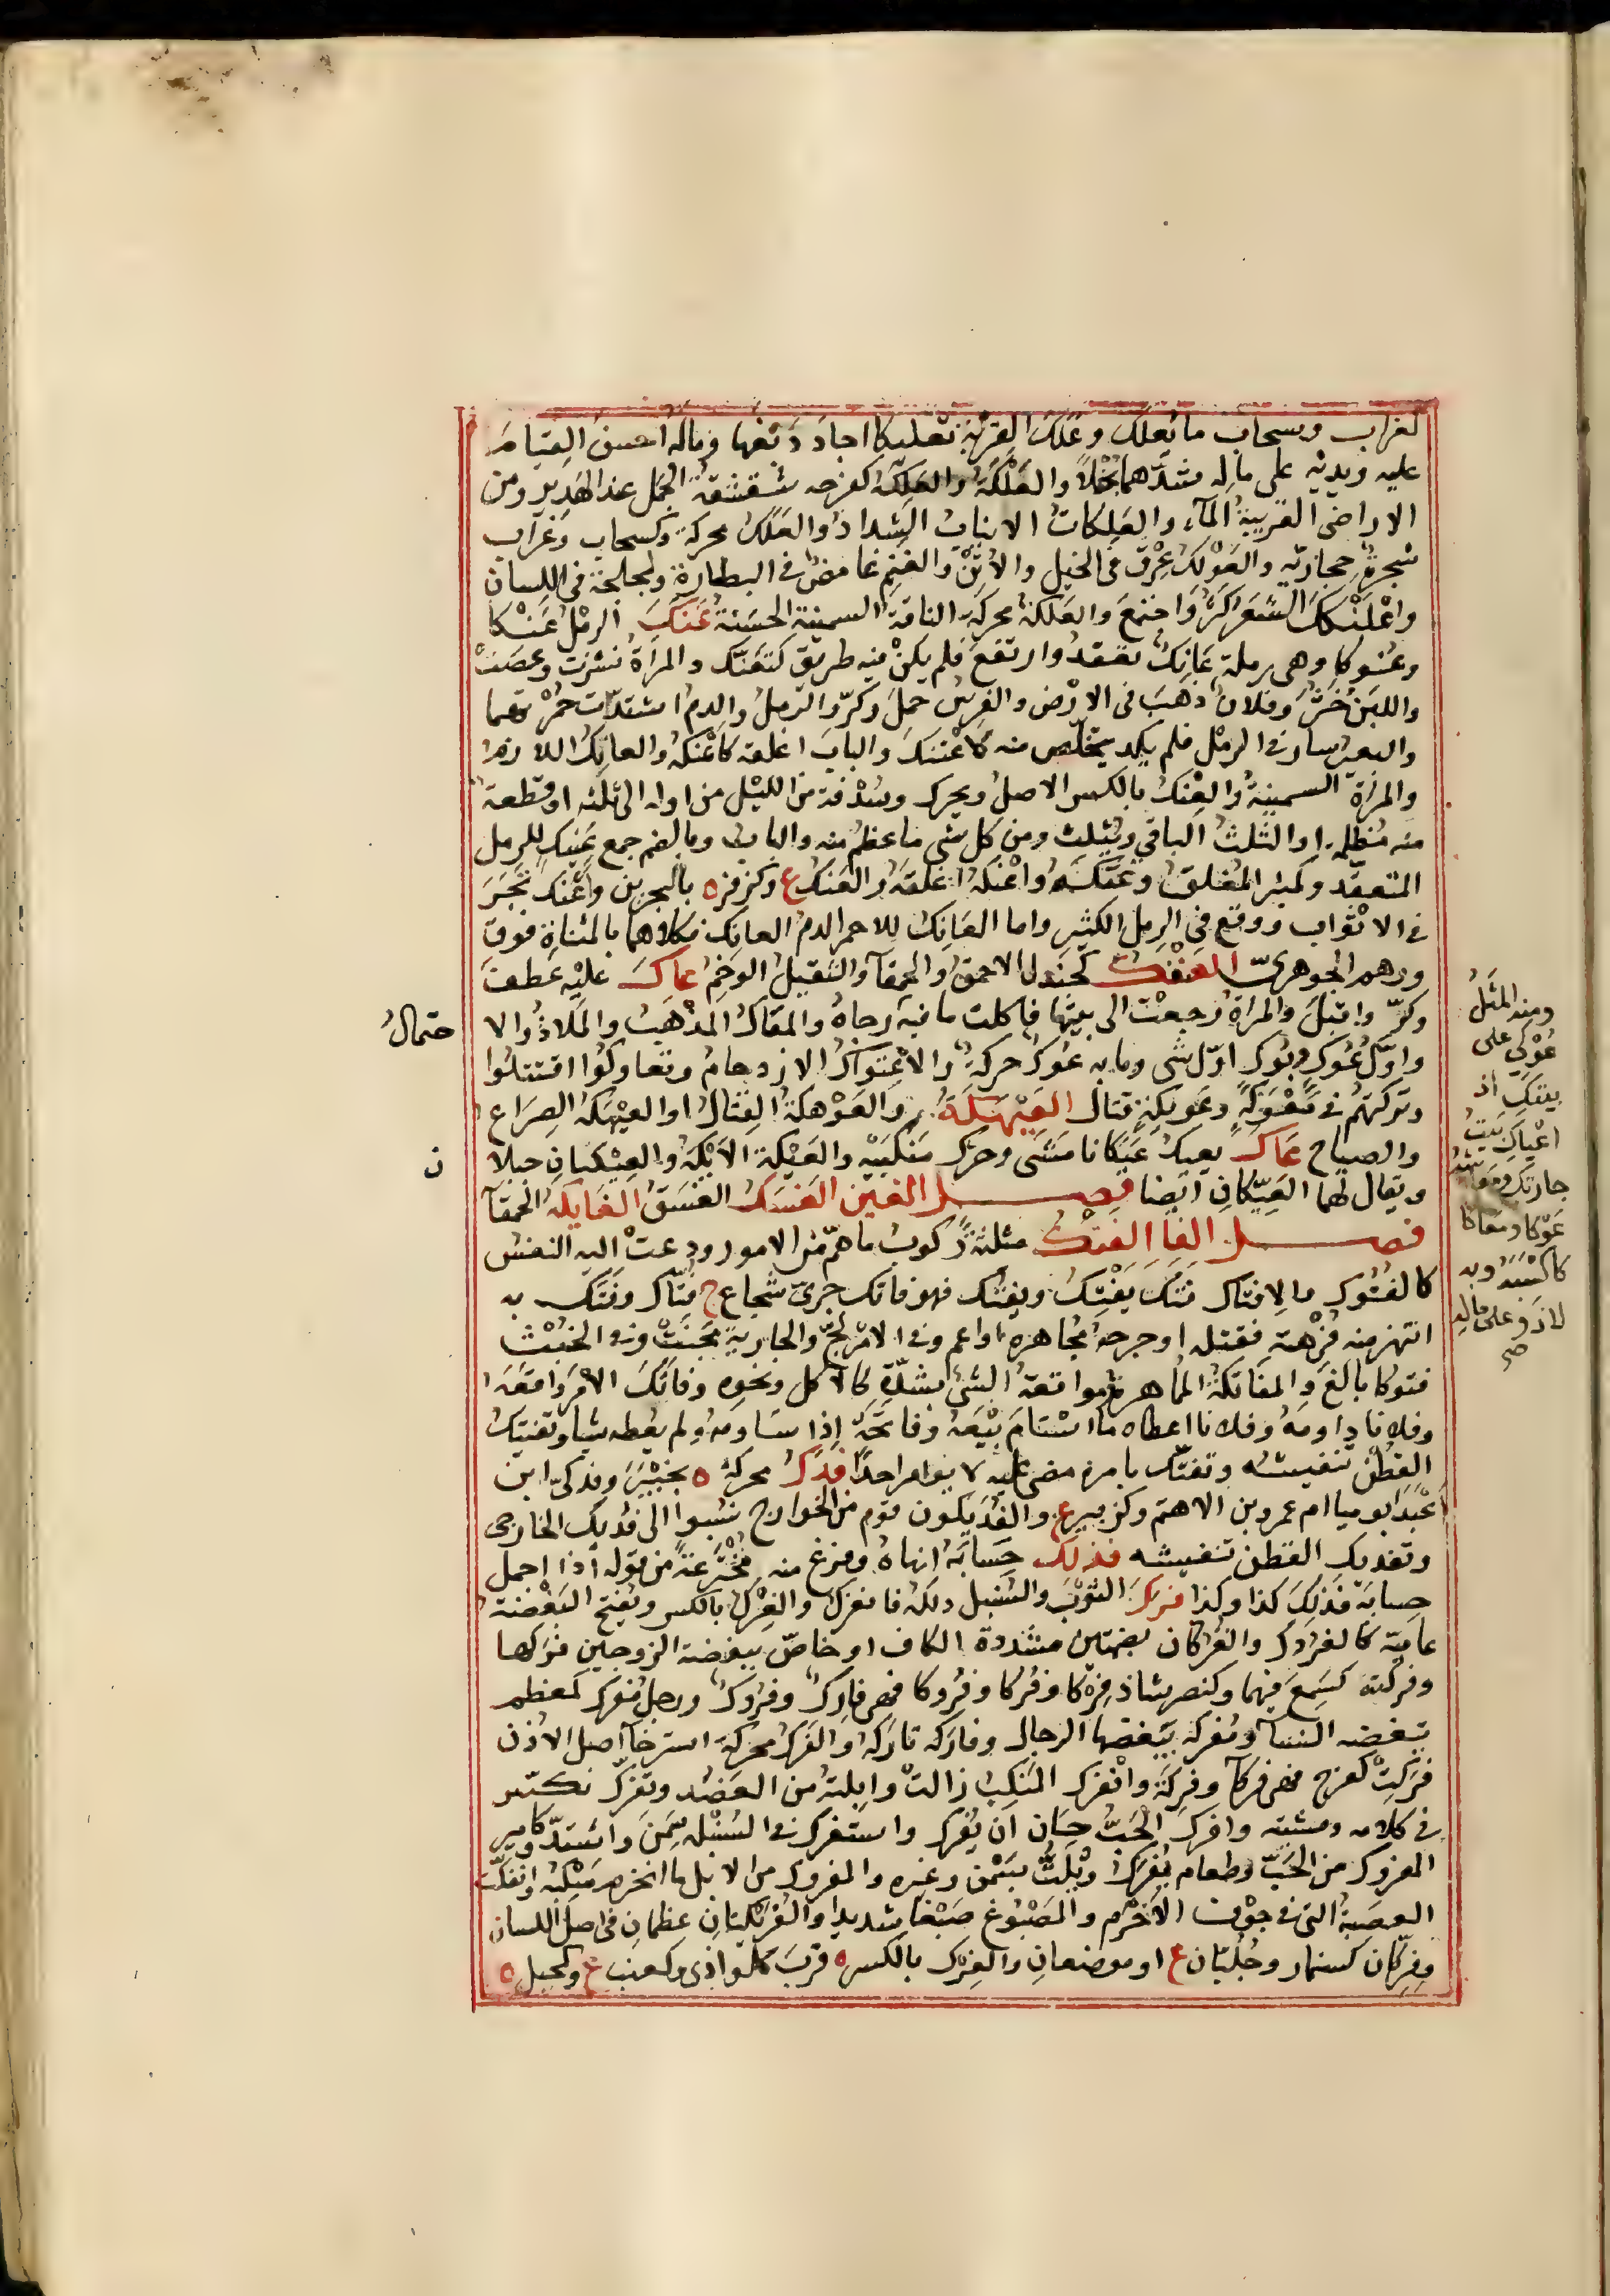 كغراب وسحاب ما يُعلك وعَلَّكَ القِرْبَة تعليكا اجاد دبغها وماله احسن القيام
عليه ويديه على ماله شدّهما بُخْلاً والعَلَكَة والعَلِكَة كفرحه شقشقة الجمل عند الهَدِير ومن
الاراضى القريبةُ الماء والعَلِكاتُ الانياب الشداد والعَلَك محركة وكسحاب وغراب
شجرة حجازيّه والعَوْلَك عِرْق فى الخيل والاتن والغنم غامض فى البظارة ولجلجة فى اللسان
واعْلَنْكَكَ الشعر كثر واجتمع والعلكة محركة الناقة السمينة الحسنة عَنَكَ الرمل عَنْكا
وعنوكا وهى رملة عانِك تعقد وارتفع فلم يكن فيه طريق كتعنّك والمرأة نشزت وعصت
واللبن خثر وفلان ذهب فى الارض والفرس حمل وكرّ والرمل والدم اشتدّت حُمرتهما
والبعير سار فى الرمل فلم يكد يتخلّص منه كاعْتَنَكَ والباب اغلقه كاعْنَكَهُ والعانِك اللازم
والمرأة السمينة والعِنْك بالكسر الاصل ويحرك وسُدْفة من الليل من اوله الى ثلثه او قطعة
منه مُظلمة او الثلث الباقي ويُثلث ومن كل شى ما عظم منه والباب وبالضم جمع عَنِيك للرمل
المتعقد وكمنبر المغلق وعنّكه واعْنَكه اغلقه والعَنْك ع وكزفر ه بالبحرين واَعْنَك تَجَرَ
فى الاثواب ووقع فى الرمل الكثير واما العَانِك للاحمر والدم العانك فكلاهما بالمثناة فوق
ووهم الجوهرىّ العَنْفَك كجندل الاحمق والحمقآ والثقيل الوخم عاكَ عليه عطف
وكرّ واقبل والمرأة رجعت الى بيتها فاكلت ما فيه رجاهُ والمَعَاك المذهب والمَلاذُ والا
واوّل عُوُوك وبُوُوك اوّل شى وما به عَوْك حركة والاعْتِواك الازدحام وتعاوكوا اقتتلوا
وتركتهم فى مَعْوَكَةٍ وعَوِيكةٍ قتال العَيْهَكَةُ والعَوْهَكَة القتال او العَيْهَكَة الصراع
والصياح عَاكَ يعيك عَيَكانا مَشَى وحرّك منكبيه والعَيْكَة الاَيْكَة والعيكان جبلا
ويقال لهما العَيِّكان ايضا فصل الغين الغَسَك الغَسَق الغَايكة الحمقآ
فصل الفا الفَتْك مثلثة ركوب ما همّ من الامور ودعت اليه النفس
كالفتوك والافتاك فَتَكَ يَفْتِك ويفتُك فهو فاتك جرىّ شجاع ج فُتّاك وفَتَك به
انتهز منه فُرصة فقتله او جرحه مجاهرة او اعم وفى الامر لجّ والجارية مجنت وفى الخبث
فتوكا بالغ والمفاتكة المماهرة ومواقعة الشى بشدّة كالاكل ونحوه وفاتك الامر واقعه
وفلانا داومه وفلانا اعطاه ما استام بيعه وفاتحه اذا ساومه ولم يعطه شيا وتفتيك
القطن تنفيشه وتفتّك بامره مضى عليه لا يوامر احدا فدك محركة ه بخيبر وفدكىّ ابن
اعبد ابو ميا ام عمرو بن الاهتم وكزبير ع والفُدَيكون قوم من الخوارج نسبوا الى فديك الخارجى
وتفديك القطن تنفيشه فذلك حسابه انهاه وفرغ منه مخترعة من قوله اذا اجمل
حسابه فذلك كذا وكذا فرك الثوب والسنبل دلكه فانفرك والفِرْك بالكسر ويفتح البغضة
عامّة كالفروك والفُرُكّان بضمتين مشددة الكاف او خاص ببغضة الزوجين فركها
وفركته كسمع فيهما وكنصر شاذ فِرْكا وفَركا وفُروكا فهى فارك وفروك ورجل مفرّك كمعظم
تبغضه النسآ ومفركه يبغضها الرجال وفاركه تاركه والفرك محركة استرخآ اصل الاذن
فركت كفرح فهى فركآ وفركة وانفرك المنكب زالت وابلته من العضد وتفرّك تكسّر
فى كلامه ومشيته وافرك الحَبّ حان ان يُفرك واستفرك فى السنبلة سمن واشتدّ وكامير
المفروك من الحَبّ وطعام يُفرك ويُلتّ بسمن وغيره والمفروك من الابل ما انخرم منكبه وانفكّت
العصبة التى فى جوف الاخرم والمصبوغ صَبْغا شديدا والفُرَيْكتان عظمان فى اصل اللسان
وفِرِكّان كسِنمار وجُلُبّان ع او موضعان والفِرْك بالكسر ه قرب كلواذى وكعنب ع وكجبل ه
حتمالُ
ن
ومنه المثلُ
عُوكى على
بيتك اذ
اعياك بيت
جارتك ومعاشه
عَوْكا ومعاكا
كاكتسبه وبه
لاذ وعلى ماله
صح